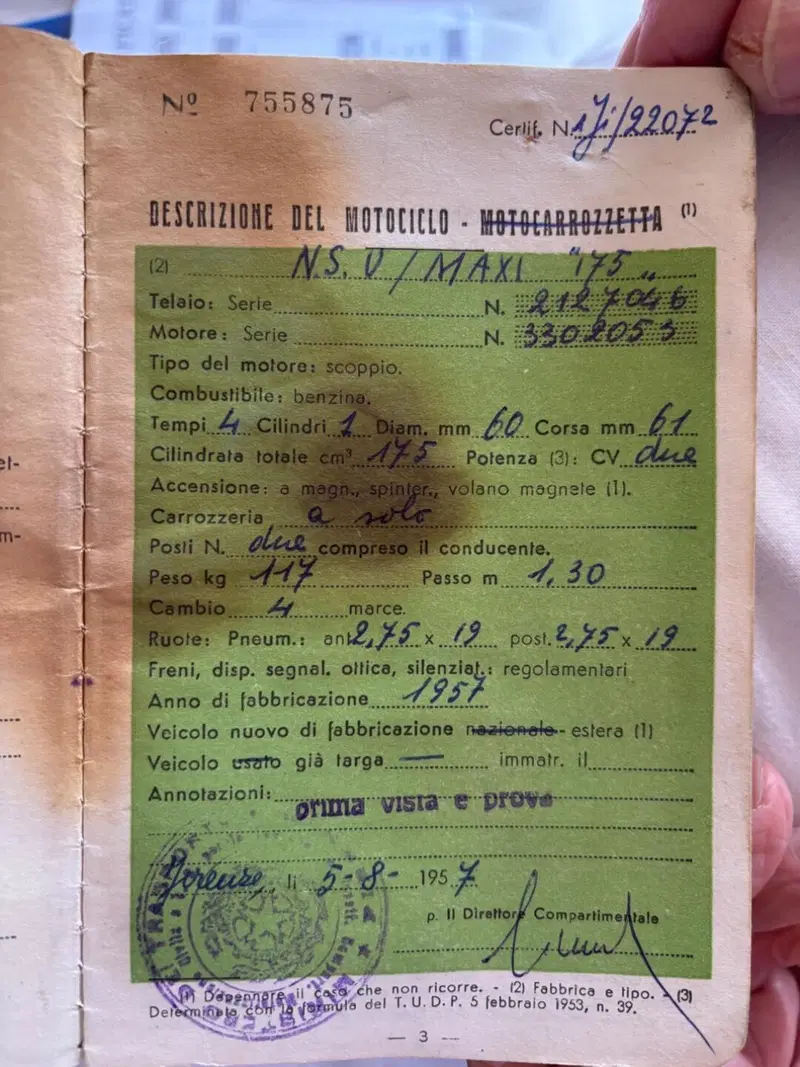 Nº 755875
Certif. N. 1Ji/22072
DESCRIZIONE DEL MOTOCICLO - MOTOCARROZZETTA (1)
(2) N.S.U/MAXI "175"
Telaio: Serie N. 2127046
Motore: Serie N. 3302053
Tipo del motore: scoppio.
Combustibile: benzina.
Tempi 4 Cilindri 1 Diam. mm 60 Corsa mm 61
Cilindrata totale cm³ 175 Potenza (3): CV due
Accensione: a magn., spinter., volano magnete (1).
Carrozzeria a solo
Posti N. due compreso il conducente.
Peso kg 117 Passo m 1,30
Cambio 4 marce.
Ruote: Pneum.: ant. 2,75 x 19 post. 2,75 x 19
Freni, disp. segnal. ottica, silenziat.: regolamentari
Anno di fabbricazione 1957
Veicolo nuovo di fabbricazione nazionale - estera (1)
Veicolo usato già targa — immatr. il
Annotazioni: prima vista e prova
Firenze, li 5-8- 1957
p. Il Direttore Compartimentale
(1) Depennare il caso che non ricorre. - (2) Fabbrica e tipo. - (3)
Determinata con la formula del T. U. D. P. 5 febbraio 1953, n. 39.
— 3 —